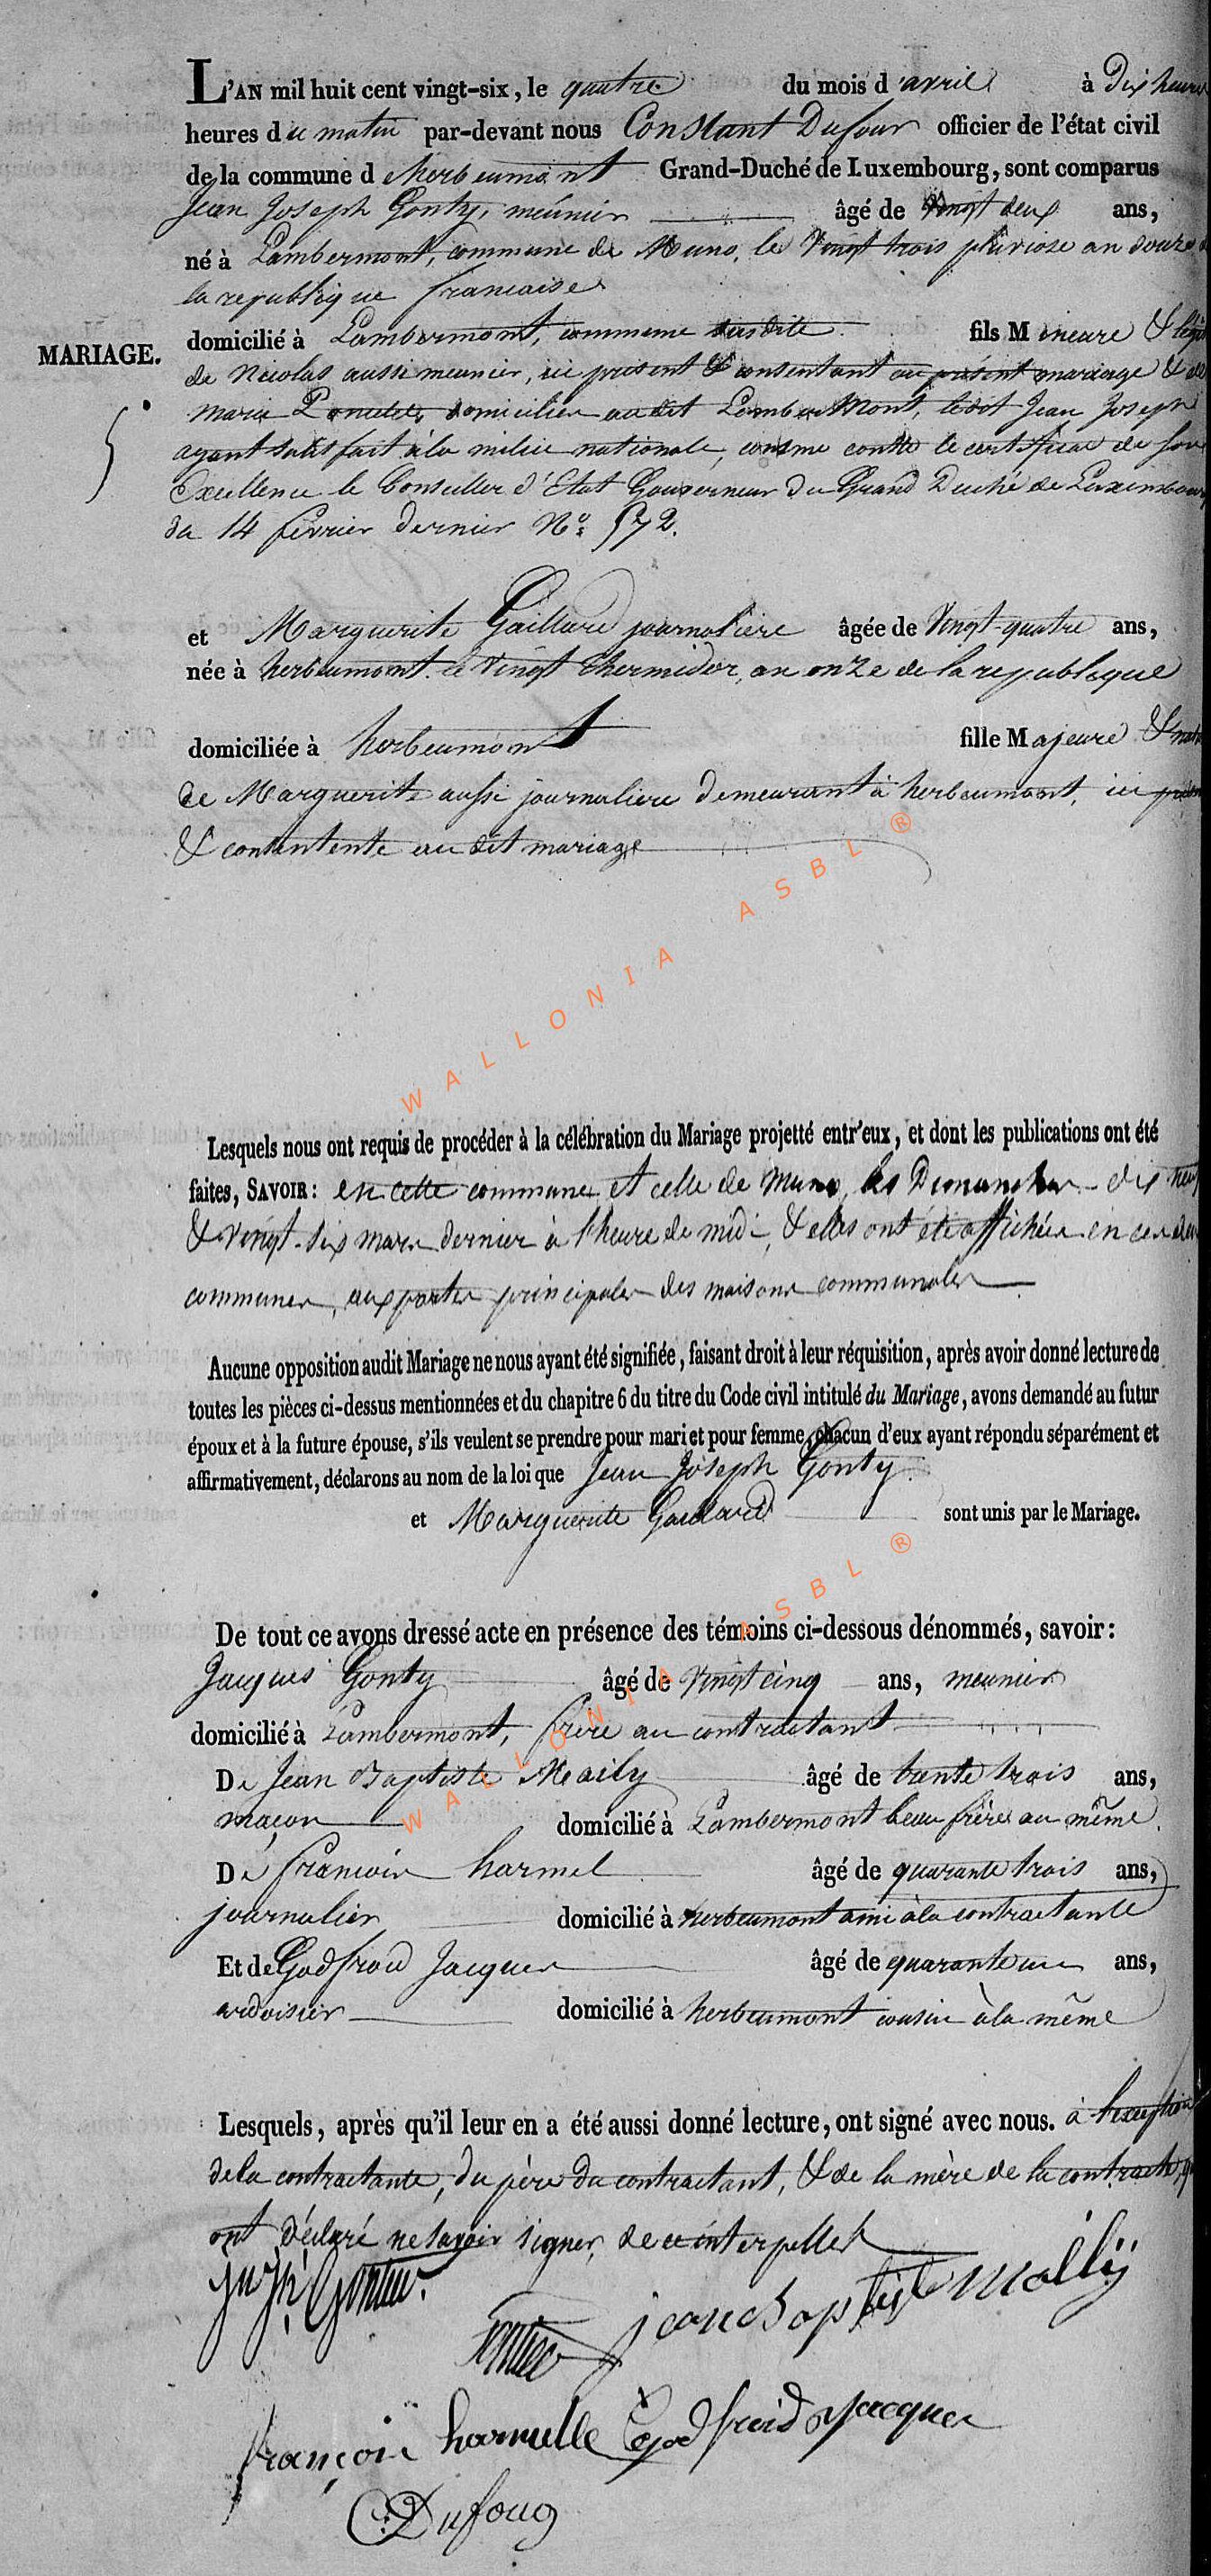 L'AN mil huit cent vingt-six, le quatre du mois d'avril à Dix heures
heures du matin par-devant nous Constant Dufour officier de l'état civil
de la commune d herbeumont Grand-Duché de Luxembourg, sont comparus
Jean Joseph Gonty, meunier âgé de vingt deux ans,
né à Lambermont, commune de Muno, le Vingt trois pluviose an douze
la republique francaise
domicilié à Lambermont, commune susdite fils Mineure &
MARIAGE.
de Nicolas aussi meunier, ici present & consentant au présent mariage & de
Marie domicilier au dit Lambermont, ledit Jean Joseph
ayant satisfait à la milice nationale, comme conste le certificat de son
Excellence le Conseiller d'Etat Gouverneur du Grand Duché de Luxembourg
du 14 fevrier dernier No: 572.
5
et Marguerite Gaillard journaliere âgée de Vingt-quatre ans,
née à herbeumont le Vingt thermidor, an onze de la republique
domiciliée à herbeumont fille Majeure &
de Marguerite aussi journaliere demeurant à herbeumont, ici
& consentente au dit mariage
WALLONIA ASBL ®
Lesquels nous ont requis de procéder à la célébration du Mariage projetté entr'eux, et dont les publications ont été
faites, SAVOIR: en cette commune et celle de Muno, les Dimanches dix neuf
& vingt-six mars dernier à l'heure de midi, & elles ont été affichées en ces
communes, aux portes principales des maisons communales
Aucune opposition audit Mariage ne nous ayant été signifiée, faisant droit à leur réquisition, après avoir donné lecture de
toutes les pièces ci-dessus mentionnées et du chapitre 6 du titre du Code civil intitulé du Mariage, avons demandé au futur
époux et à la future épouse, s'ils veulent se prendre pour mari et pour femme, chacun d'eux ayant répondu séparément et
affirmativement, déclarons au nom de la loi que Jean Joseph Gonty
et Marguerite Gaillard sont unis par le Mariage.
WALLONIA ASBL ®
De tout ce avons dressé acte en présence des témoins ci-dessous dénommés, savoir:
Jacques Gonty âgé de vingt cinq ans, meunier
domicilié à Lambermont, frère au contractant
De Jean Baptiste Mailly âgé de trente trois ans,
maçon domicilié à Lambermont beau frère au même
De francois harmel âgé de quarante trois ans,
journalier domicilié à herbeumont ami à la contractante
Et de Godfroid Jacques âgé de quarante un ans,
ardoisier domicilié à herbeumont cousin à la même
Lesquels, après qu'il leur en a été aussi donné lecture, ont signé avec nous. à l'exception
de la contractante, du père du contractant, & de la mère de la contracte,
ont déclaré ne savoir signer, de ce interpellés
jean baptiste mailly
françois harmelle Godfroid Jacques
C: Dufour